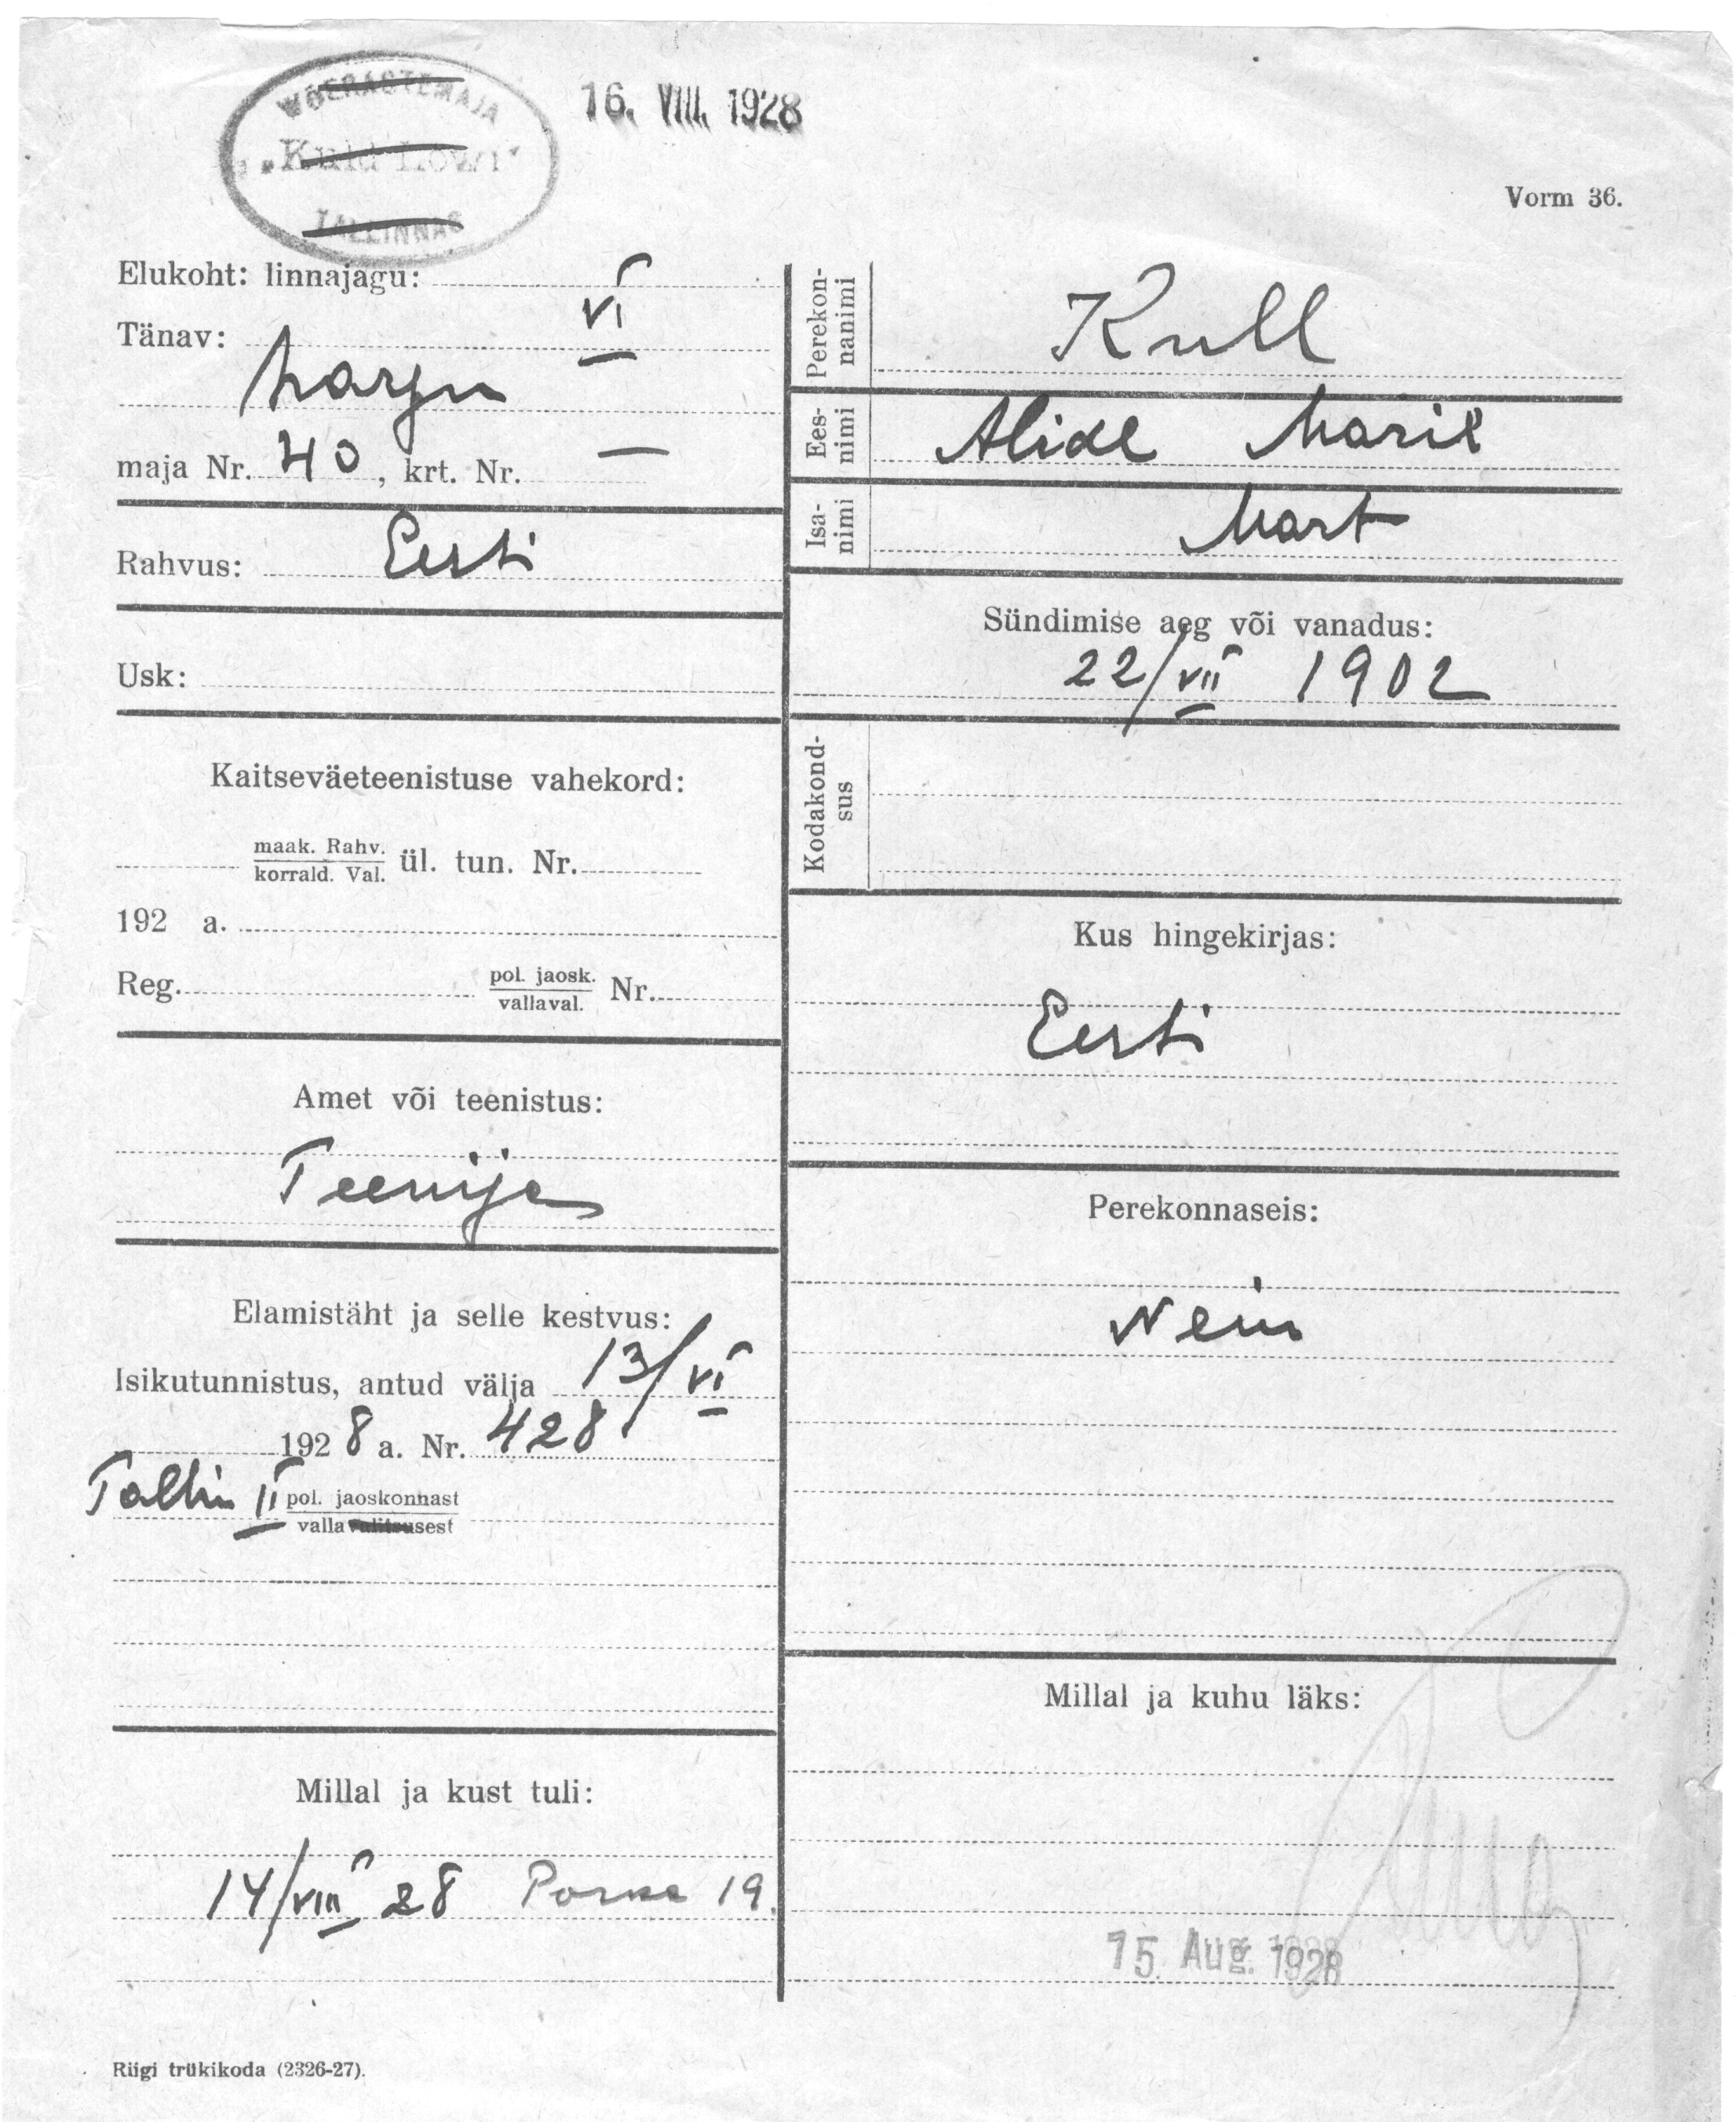 WÕERASTEMAJA
„Kuld Lõwi“
TALLINNAS
16. VIII. 1928
Vorm 36.
Elukoht: linnajagu: VI
Tänav:
Harju
maja Nr. 40, krt. Nr. —
Rahvus: Eesti
Usk:
Kaitseväeteenistuse vahekord:
maak. Rahv.
korrald. Val. ül. tun. Nr.
192 a.
Reg. pol. jaosk.
vallaval. Nr.
Amet või teenistus:
Teenija
Elamistäht ja selle kestvus:
Isikutunnistus, antud välja 13/VI
1928 a. Nr. 428
Tallin II pol. jaoskonnast
vallavalitsusest
Millal ja kust tuli:
14/VIII 28 19.
Perekon-
nanimi
Kull
Ees-
nimi
Alide Marie
Isa-
nimi
Mart
Sündimise aeg või vanadus:
22/VII 1902
Kodakond-
sus
Kus hingekirjas:
Eesti
Perekonnaseis:
Neiu
Millal ja kuhu läks:
15. Aug. 1928
Riigi trükikoda (2326-27).